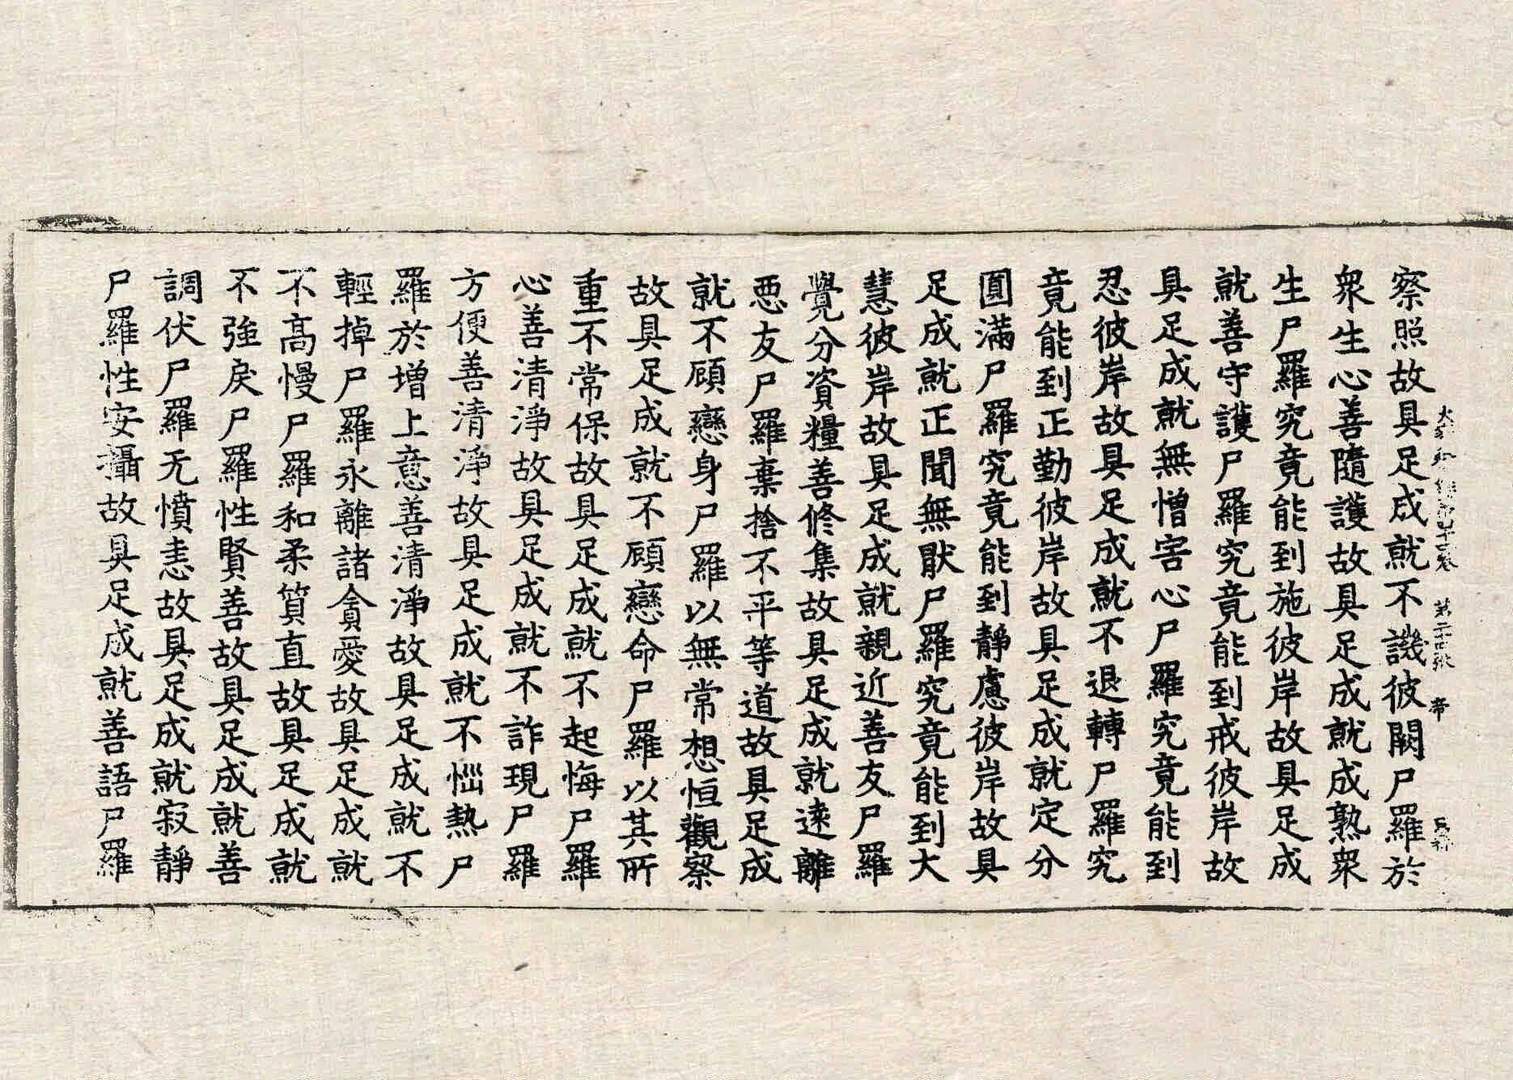 帝
察照故具足成就不譏彼闕尸羅於
衆生心善隨護故具足成就成熟衆
生尸羅究竟能到施彼岸故具足成
就善守護尸羅究竟能到戒彼岸故
具足成就無憎害心尸羅究竟能到
忍彼岸故具足成就不退轉尸羅究
竟能到正勤彼岸故具足成就定分
圓滿尸羅究竟能到靜慮彼岸故具
足成就正聞無猒尸羅究竟能到大
慧彼岸故具足成就親近善友尸羅
覺分資糧善修集故具足成就遠離
惡友尸羅棄捨不平等道故具足成
就不顧戀身尸羅以無常想恒觀察
故具足成就不顧戀命尸羅以其所
重不常保故具足成就不起悔尸羅
心善清淨故具足成就不詐現尸羅
方便善清淨故具足成就不惱熱尸
羅於增上意善清淨故具足成就不
輕掉尸羅永離諸貪愛故具足成就
不高慢尸羅和柔質直故具足成就
不強戾尸羅性賢善故具足成就善
調伏尸羅无憤恚故具足成就寂靜
尸羅性安攝故具足成就善語尸羅